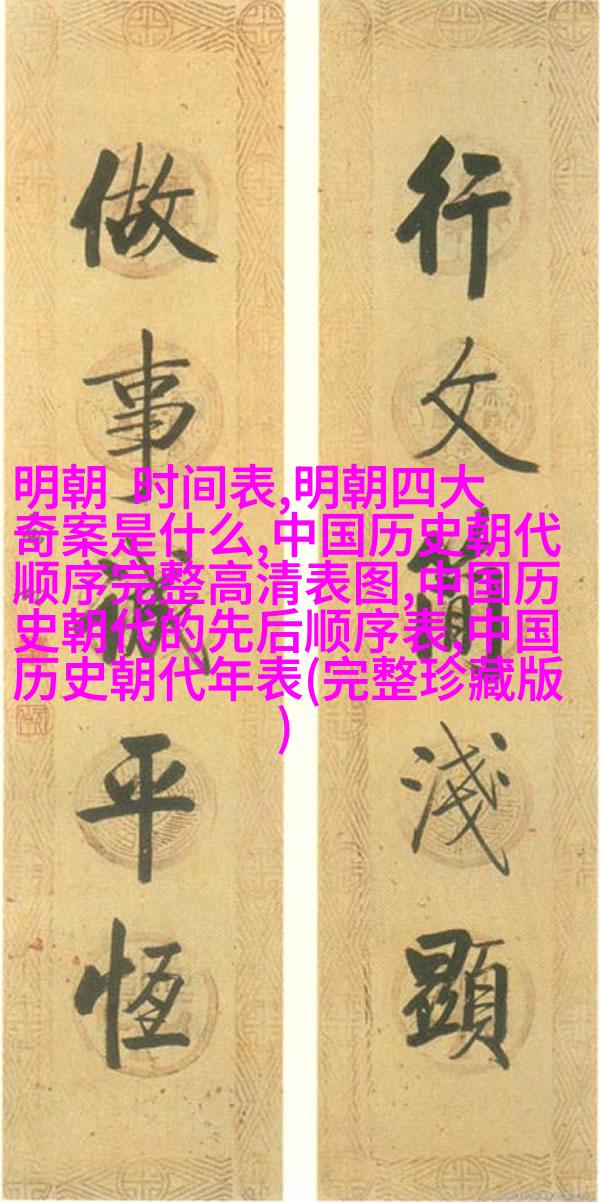 行文簡淺顯
做事平恆
明朝 时间表,明朝四大
奇案是什么,中国历史朝代
顺序完整高清表图,中国历
史朝代的先后顺序表,中国
历史朝代年表(完整珍藏版
)